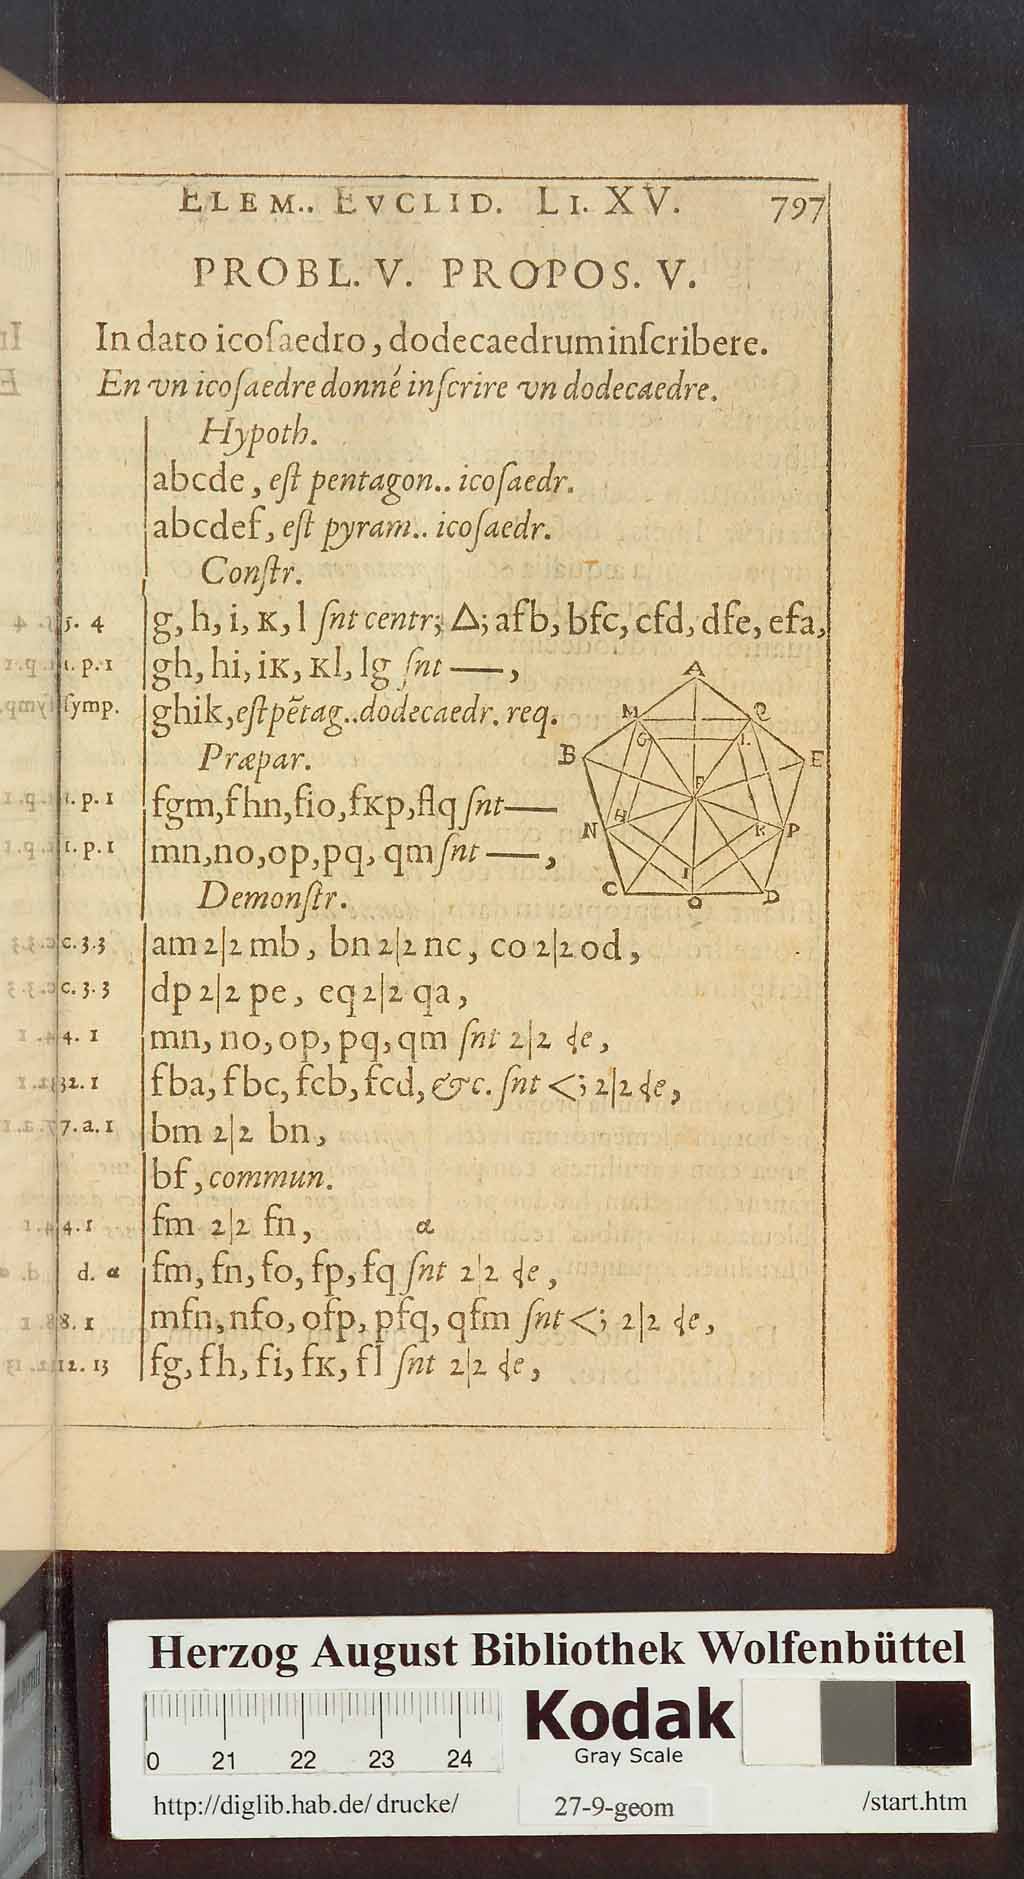 ELEM.. EVCLID. LI. XV. 797
PROBL. V. PROPOS. V.
In dato icoſaedro, dodecaedrum inſcribere.
En vn icoſaedre donné inſcrire vn dodecaedre.
Hypoth.
abcde, eſt pentagon.. icoſaedr.
abcdef, eſt pyram.. icoſaedr.
Conſtr.
5. 4 g, h, i, K, l ſnt centr; Δ; afb, bfc, cfd, dfe, efa,
1. p. 1 gh, hi, iK, Kl, lg ſnt —,
ſymp. ghik, eſt pẽtag..dodecaedr. req.
Præpar.
1. p. 1 fgm, fhn, fio, fKp, flq ſnt—
1. p. 1 mn, no, op, pq, qm ſnt —,
Demonſtr.
c. 3. 3 am 2|2 mb, bn 2|2 nc, co 2|2 od,
c. 3. 3 dp 2|2 pe, eq 2|2 qa,
4. 1 mn, no, op, pq, qm ſnt 2|2 ɖe,
32. 1 fba, fbc, fcb, fcd, &c. ſnt <; 2|2 ɖe,
7. a. 1 bm 2|2 bn,
bf, commun.
4. 1 fm 2|2 fn, α
d. α fm, fn, fo, fp, fq ſnt 2|2 ɖe,
8. 1 mfn, nfo, ofp, pfq, qfm ſnt <; 2|2 ɖe,
12. 13 fg, fh, fi, fK, fl ſnt 2|2 ɖe,
A
M Q
G L
B E
F
N H K P
I
C O D
Herzog August Bibliothek Wolfenbüttel
0 21 22 23 24
Kodak
Gray Scale
http://diglib.hab.de/drucke/ 27-9-geom /start.htm